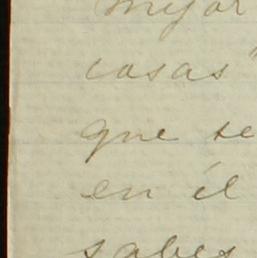 mejor
casas"
que se
en él
sabes